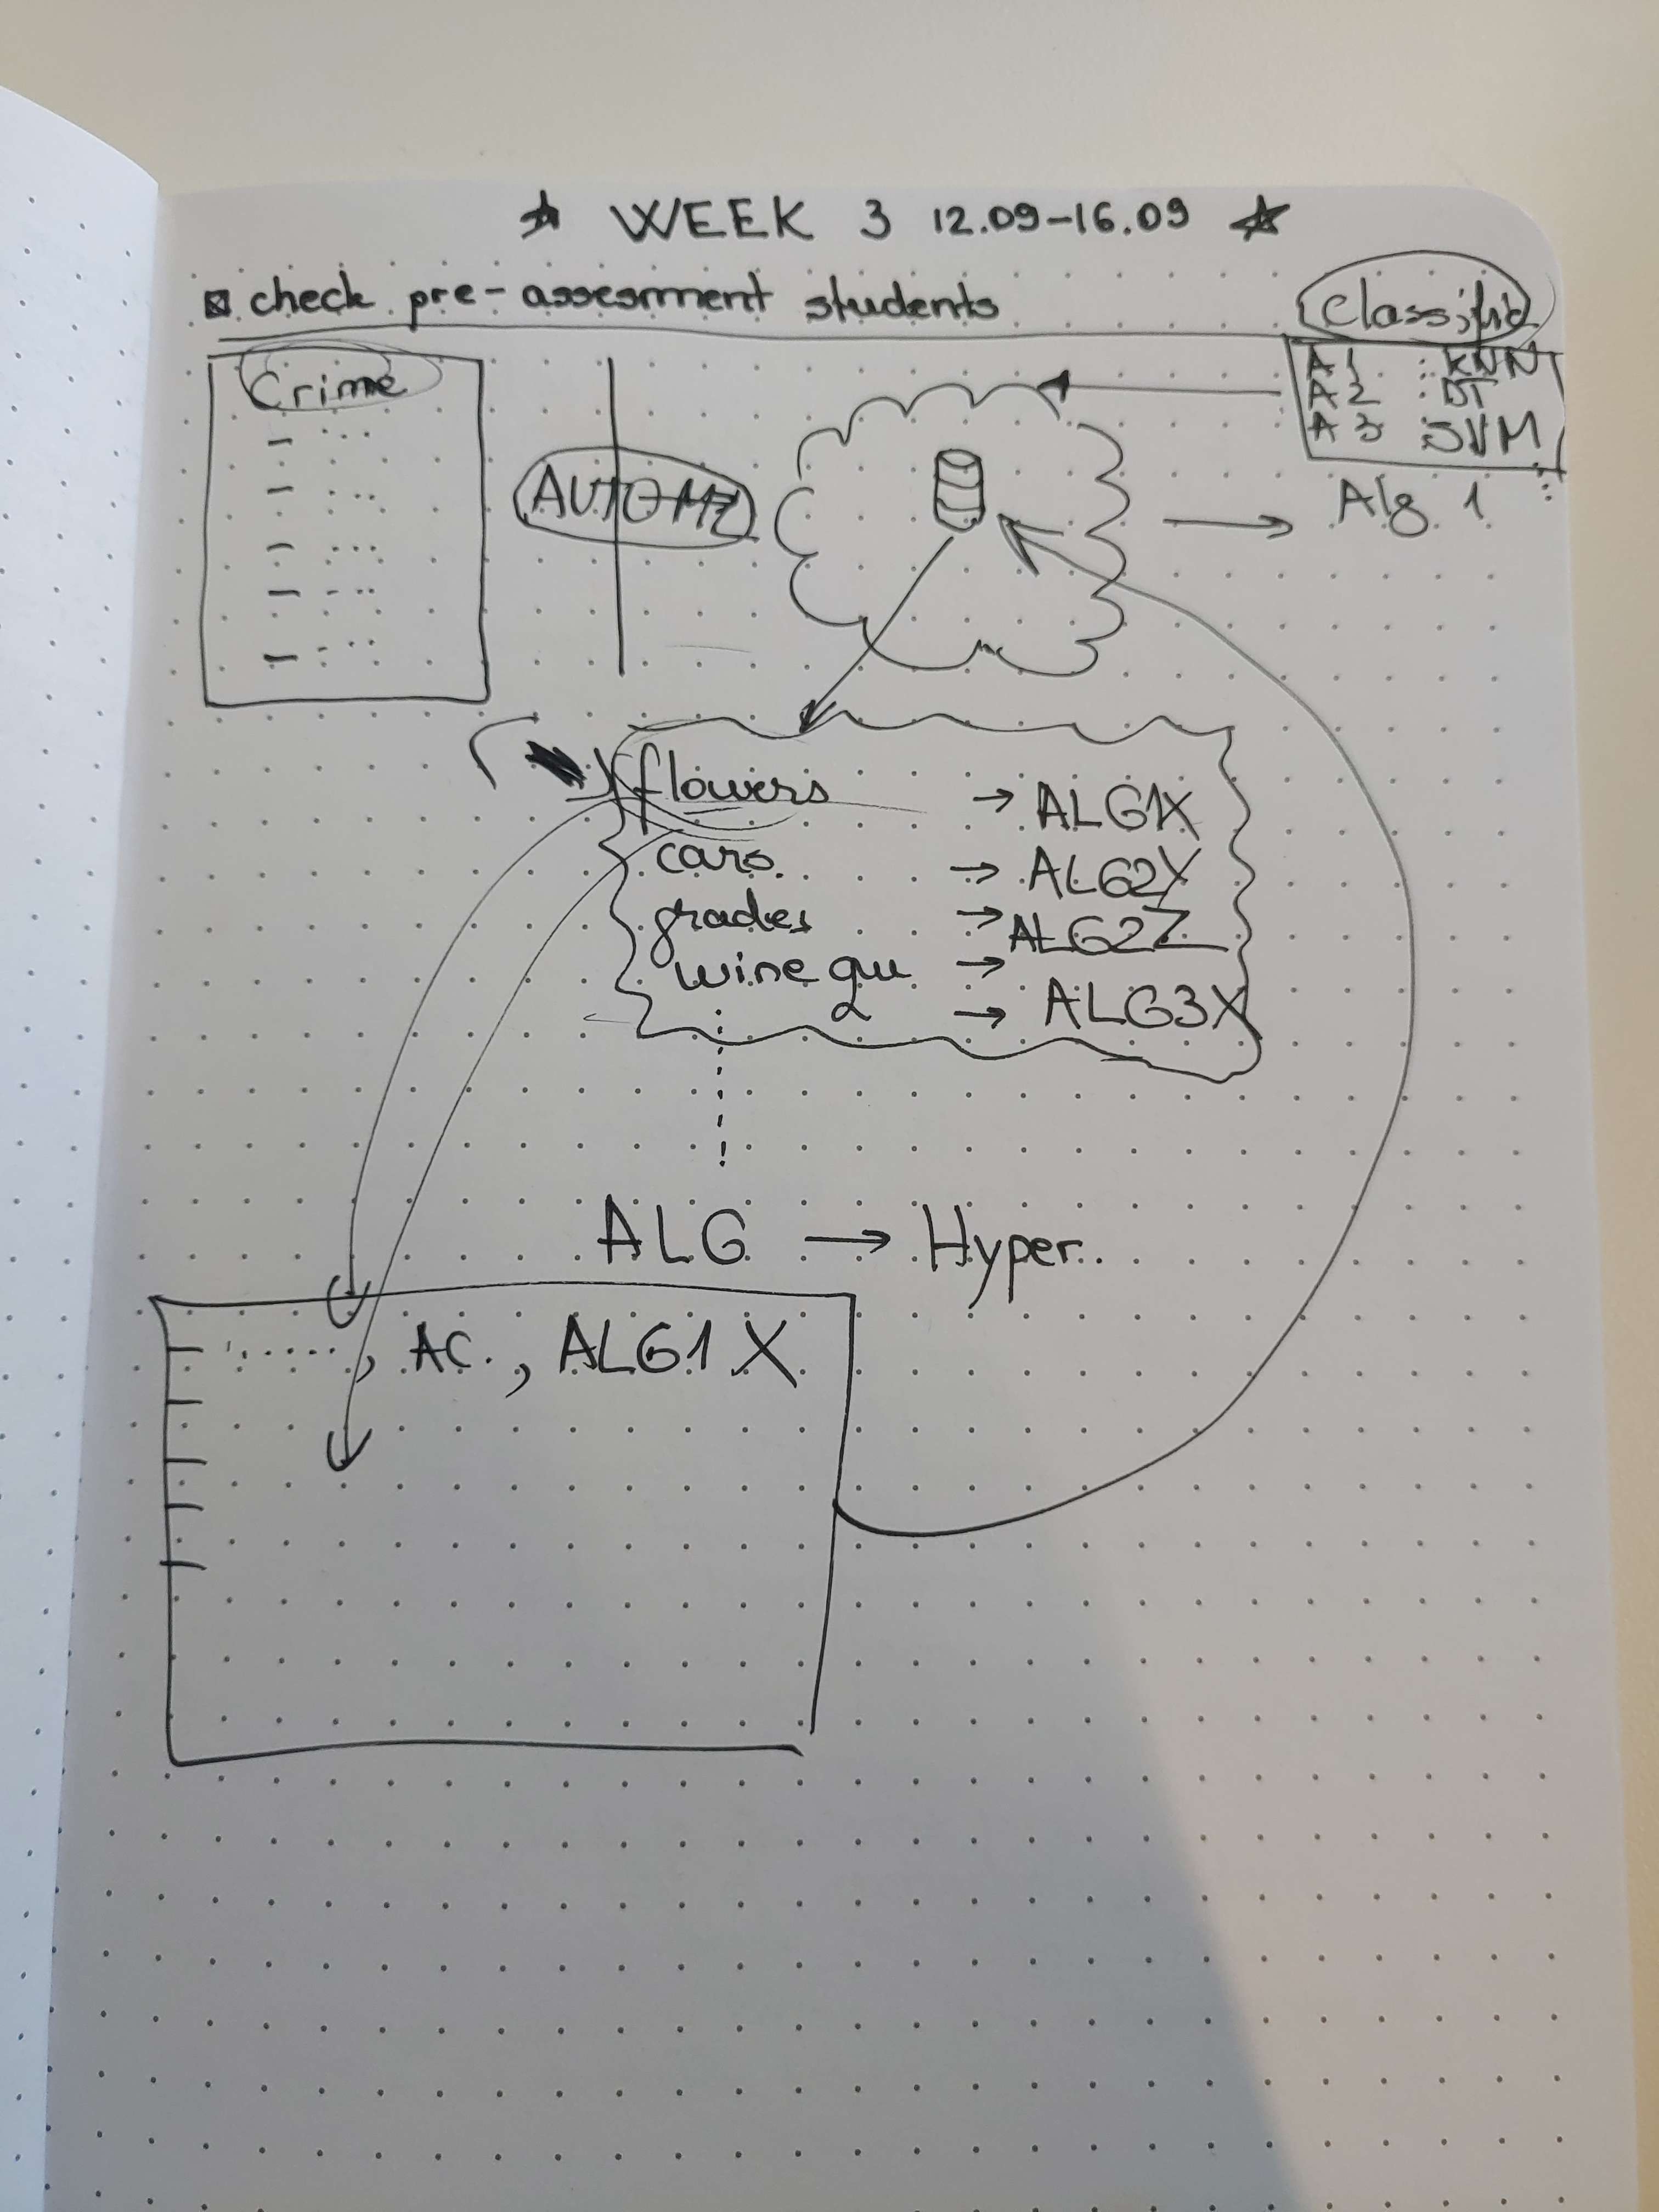 WEEK 3 12.09-16.09
check pre-assesment students
Classific
Crime
A1 : KNN
A2 : DT
A3 : SVM
AUTOML
Alg. 1
flowers → ALG1X
cars → ALG2Y
grades → ALG2Z
wine qu →
→ ALG3X
ALG → Hyper..
....., AC., ALG1X